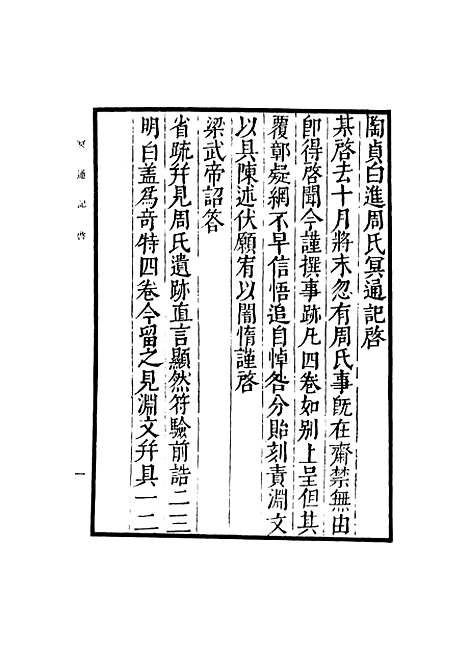 陶貞白進周氏冥通記啓
某啓去十月將末忽有周氏事旣在齋禁無由
卽得啓聞今謹撰事跡凡四卷如别上呈但其
覆鄣疑網不早信悟追自悼咎分貽刻責淵文
以具陳述伏願宥以闇惰謹啓
梁武帝詔答
省疏幷見周氏遺跡直言顯然符驗前誥二三
明白盖爲奇特四卷今留之見淵文幷具一二
冥通記啓
一